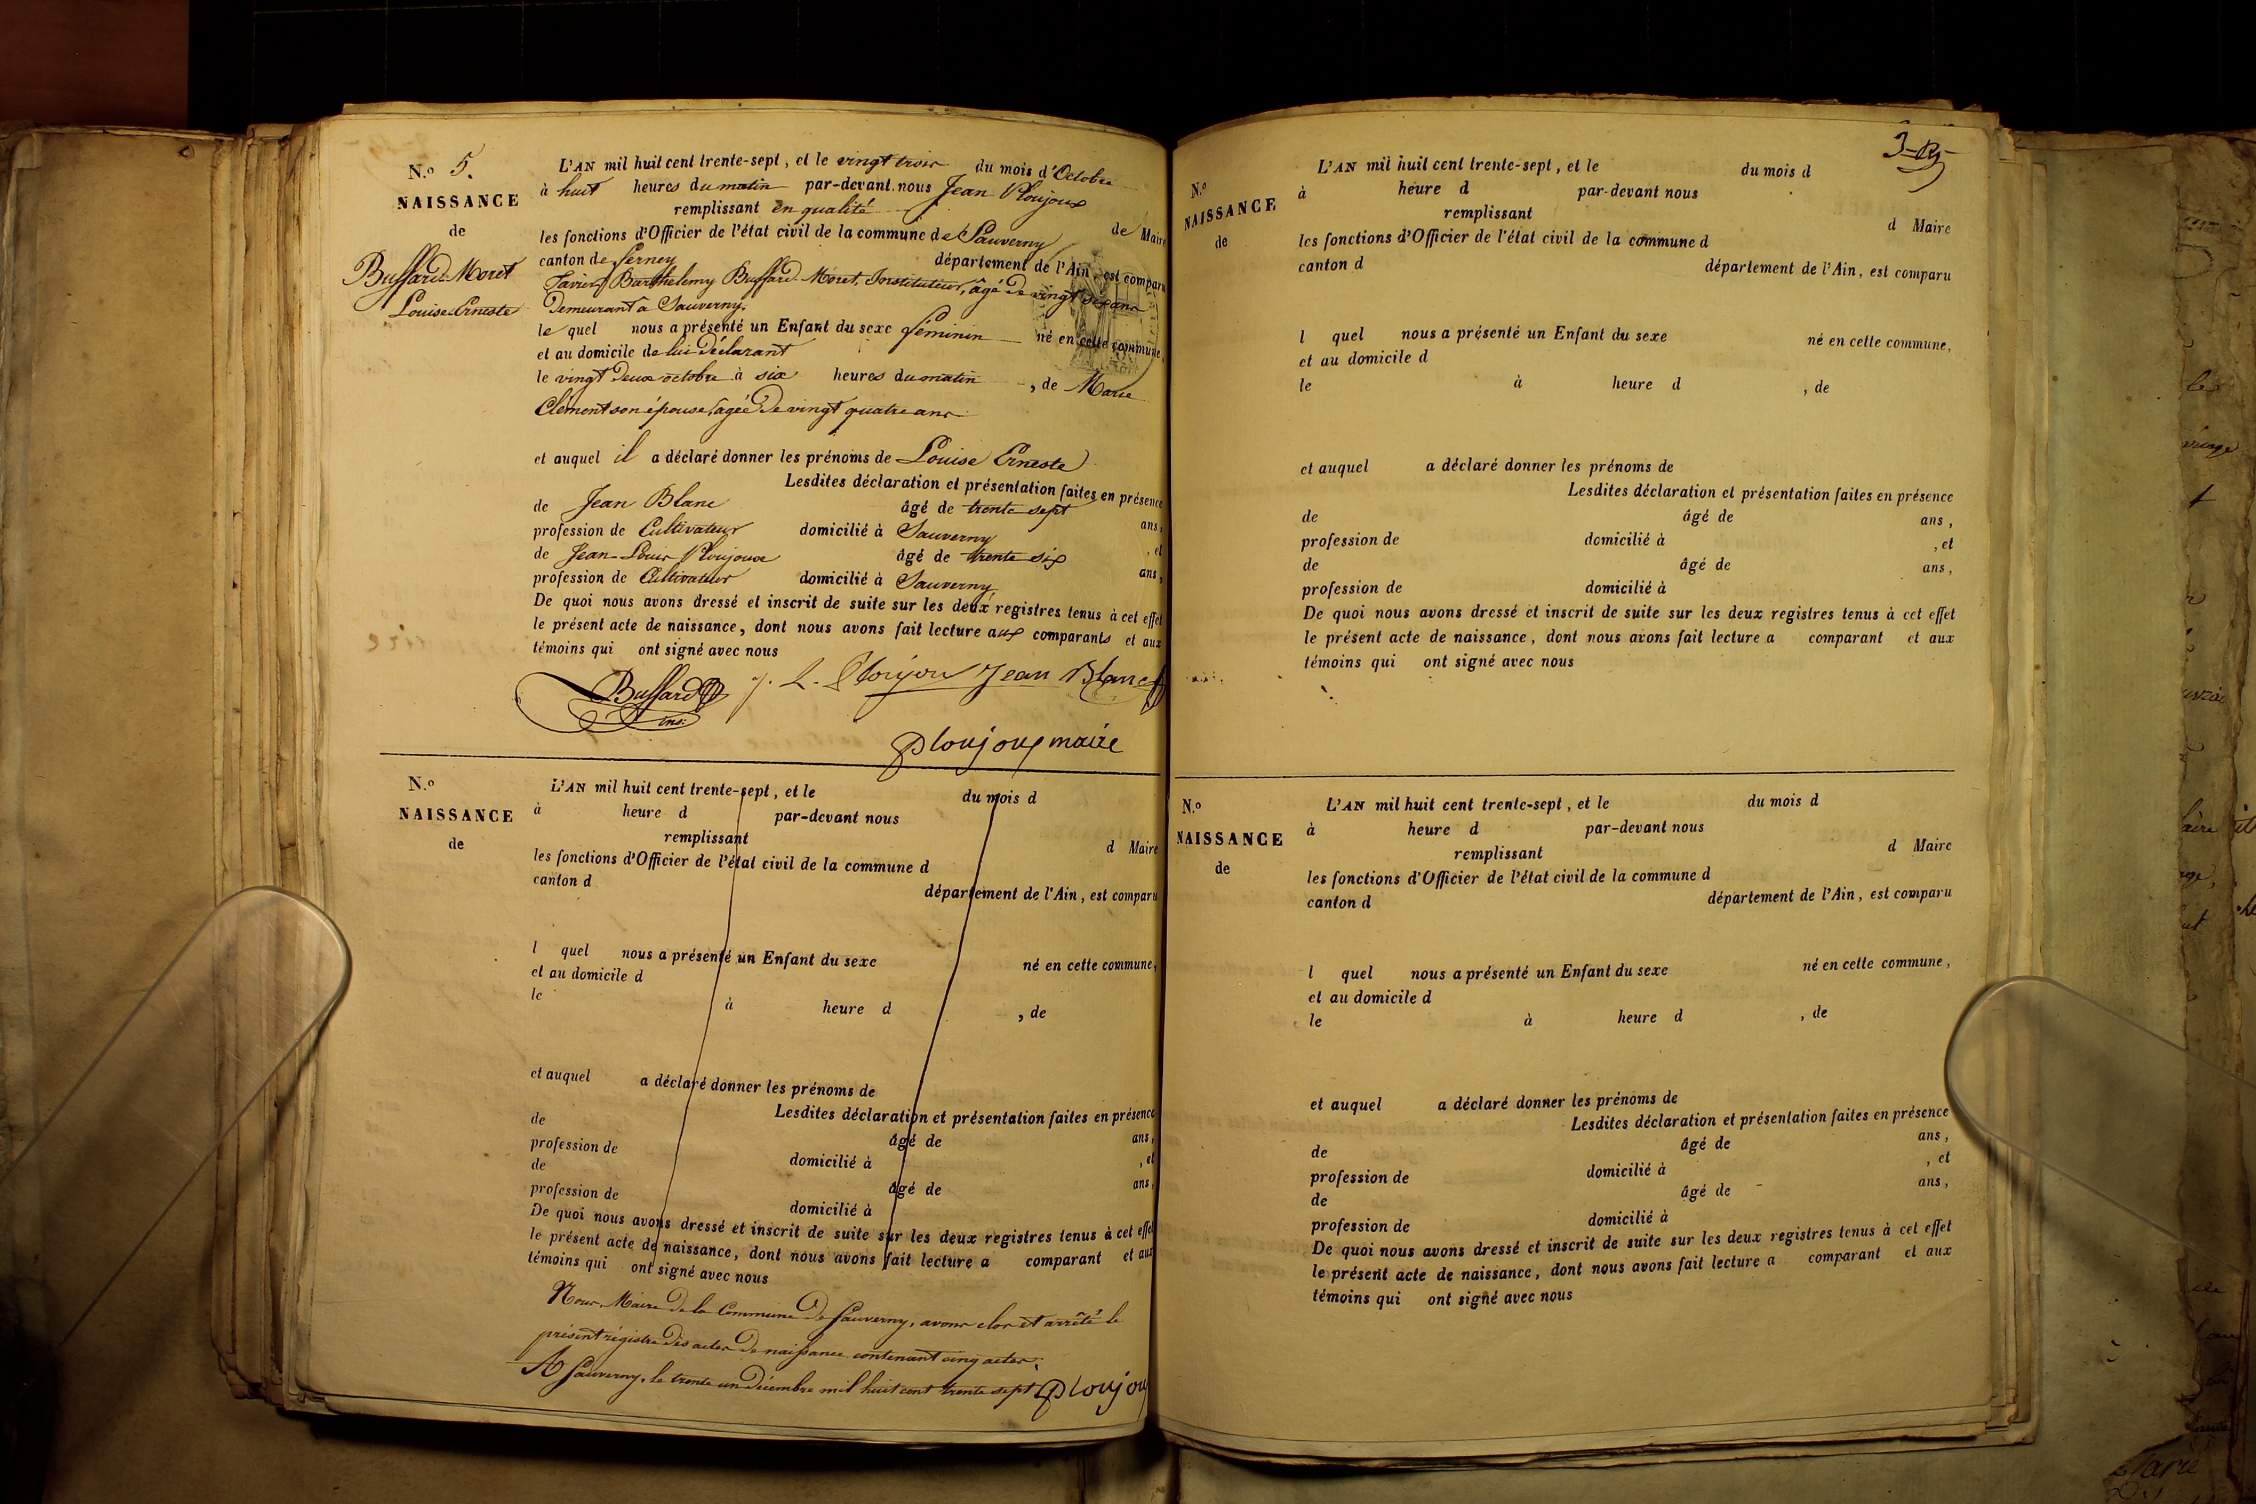 N.o 5.
NAISSANCE
de
Buffard-Moret
Louise Erneste
L'AN mil huit cent trente-sept, et le vingt trois du mois d'Octobre
à huit heures du matin par-devant nous Jean Ploujoux
remplissant en qualité de Maire
les fonctions d'Officier de l'état civil de la commune de Sauverny
canton de Ferney département de l'Ain, est comparu
Xavier Barthelemy Buffard-Moret, Instituteur, âgé de vingt six ans
Demeurant à Sauverny.
le quel nous a présenté un Enfant du sexe féminin né en cette commune,
et au domicile de lui déclarant
le vingt deux octobre à six heures du matin, de Marie
Clément son épouse, agée de vingt quatre ans
et auquel il a déclaré donner les prénoms de Louise Erneste
Lesdites déclaration et présentation faites en présence
de Jean Blanc âgé de trente sept ans,
profession de Cultivateur domicilié à Sauverny, et
de Jean-Louis Ploujoux âgé de trente six ans,
profession de Cultivateur domicilié à Sauverny
De quoi nous avons dressé et inscrit de suite sur les deux registres tenus à cet effet
le présent acte de naissance, dont nous avons fait lecture aux comparants et aux
témoins qui ont signé avec nous
Buffard J. L. Ploujou Jean Blanc
ins:
Ploujoux maire
N.o
NAISSANCE
de
L'AN mil huit cent trente-sept, et le du mois d
à heure d par-devant nous
remplissant d Maire
les fonctions d'Officier de l'état civil de la commune d
canton d département de l'Ain, est comparu
l quel nous a présenté un Enfant du sexe né en cette commune,
et au domicile d
le à heure d , de
et auquel a déclaré donner les prénoms de
Lesdites déclaration et présentation faites en présence
de âgé de ans,
profession de domicilié à , et
de âgé de ans,
profession de domicilié à
De quoi nous avons dressé et inscrit de suite sur les deux registres tenus à cet effet
le présent acte de naissance, dont nous avons fait lecture a comparant et aux
témoins qui ont signé avec nous
Nous, Maire de la Commune de Sauverny, avons clos et arrêté le
présent régistre des actes de naissance contenant cinq actes.
A Sauverny, le trente un Décembre mil huit cent trente sept Ploujou
N.o
NAISSANCE
de
L'AN mil huit cent trente-sept, et le du mois d
à heure d par-devant nous
remplissant d Maire
les fonctions d'Officier de l'état civil de la commune d
canton d département de l'Ain, est comparu
l quel nous a présenté un Enfant du sexe né en cette commune,
et au domicile d
le à heure d , de
et auquel a déclaré donner les prénoms de
Lesdites déclaration et présentation faites en présence
de âgé de ans,
profession de domicilié à , et
de âgé de ans,
profession de domicilié à
De quoi nous avons dressé et inscrit de suite sur les deux registres tenus à cet effet
le présent acte de naissance, dont nous avons fait lecture a comparant et aux
témoins qui ont signé avec nous
N.o
NAISSANCE
de
L'AN mil huit cent trente-sept, et le du mois d
à heure d par-devant nous
remplissant d Maire
les fonctions d'Officier de l'état civil de la commune d
canton d département de l'Ain, est comparu
l quel nous a présenté un Enfant du sexe né en cette commune,
et au domicile d
le à heure d , de
et auquel a déclaré donner les prénoms de
Lesdites déclaration et présentation faites en présence
de âgé de ans,
profession de domicilié à , et
de âgé de ans,
profession de domicilié à
De quoi nous avons dressé et inscrit de suite sur les deux registres tenus à cet effet
le présent acte de naissance, dont nous avons fait lecture a comparant et aux
témoins qui ont signé avec nous